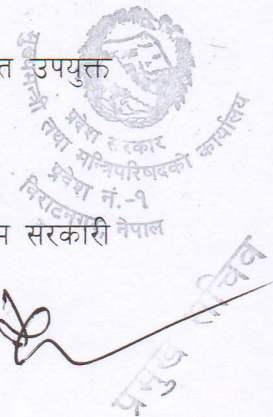 त उपयुक्त
प्रदेश सरकार
मुख्यमन्त्री तथा मन्त्रिपरिषदको कार्यालय
प्रदेश नं.-१
विराटनगर, नेपाल
सरकारी
प्रमुख सचिव